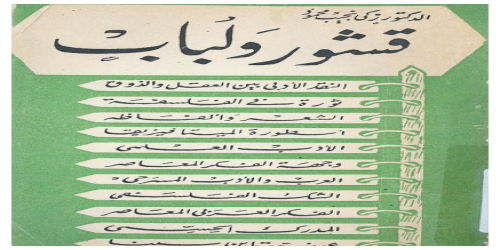 الدكتور زكي نجيب محمود
قشور ولباب
النقد الأدبي بين العقل والذوق
ثورة في الفلسفة
الشعر والفاظه
أسطورة الميتافيزيقا
الأدب العلمي
وجهة الفكر المعاصر
العرب والأدب المسرحي
الشك الفلسفي
الفكر العربي المعاصر
المدرك الحسي
ابن سينا